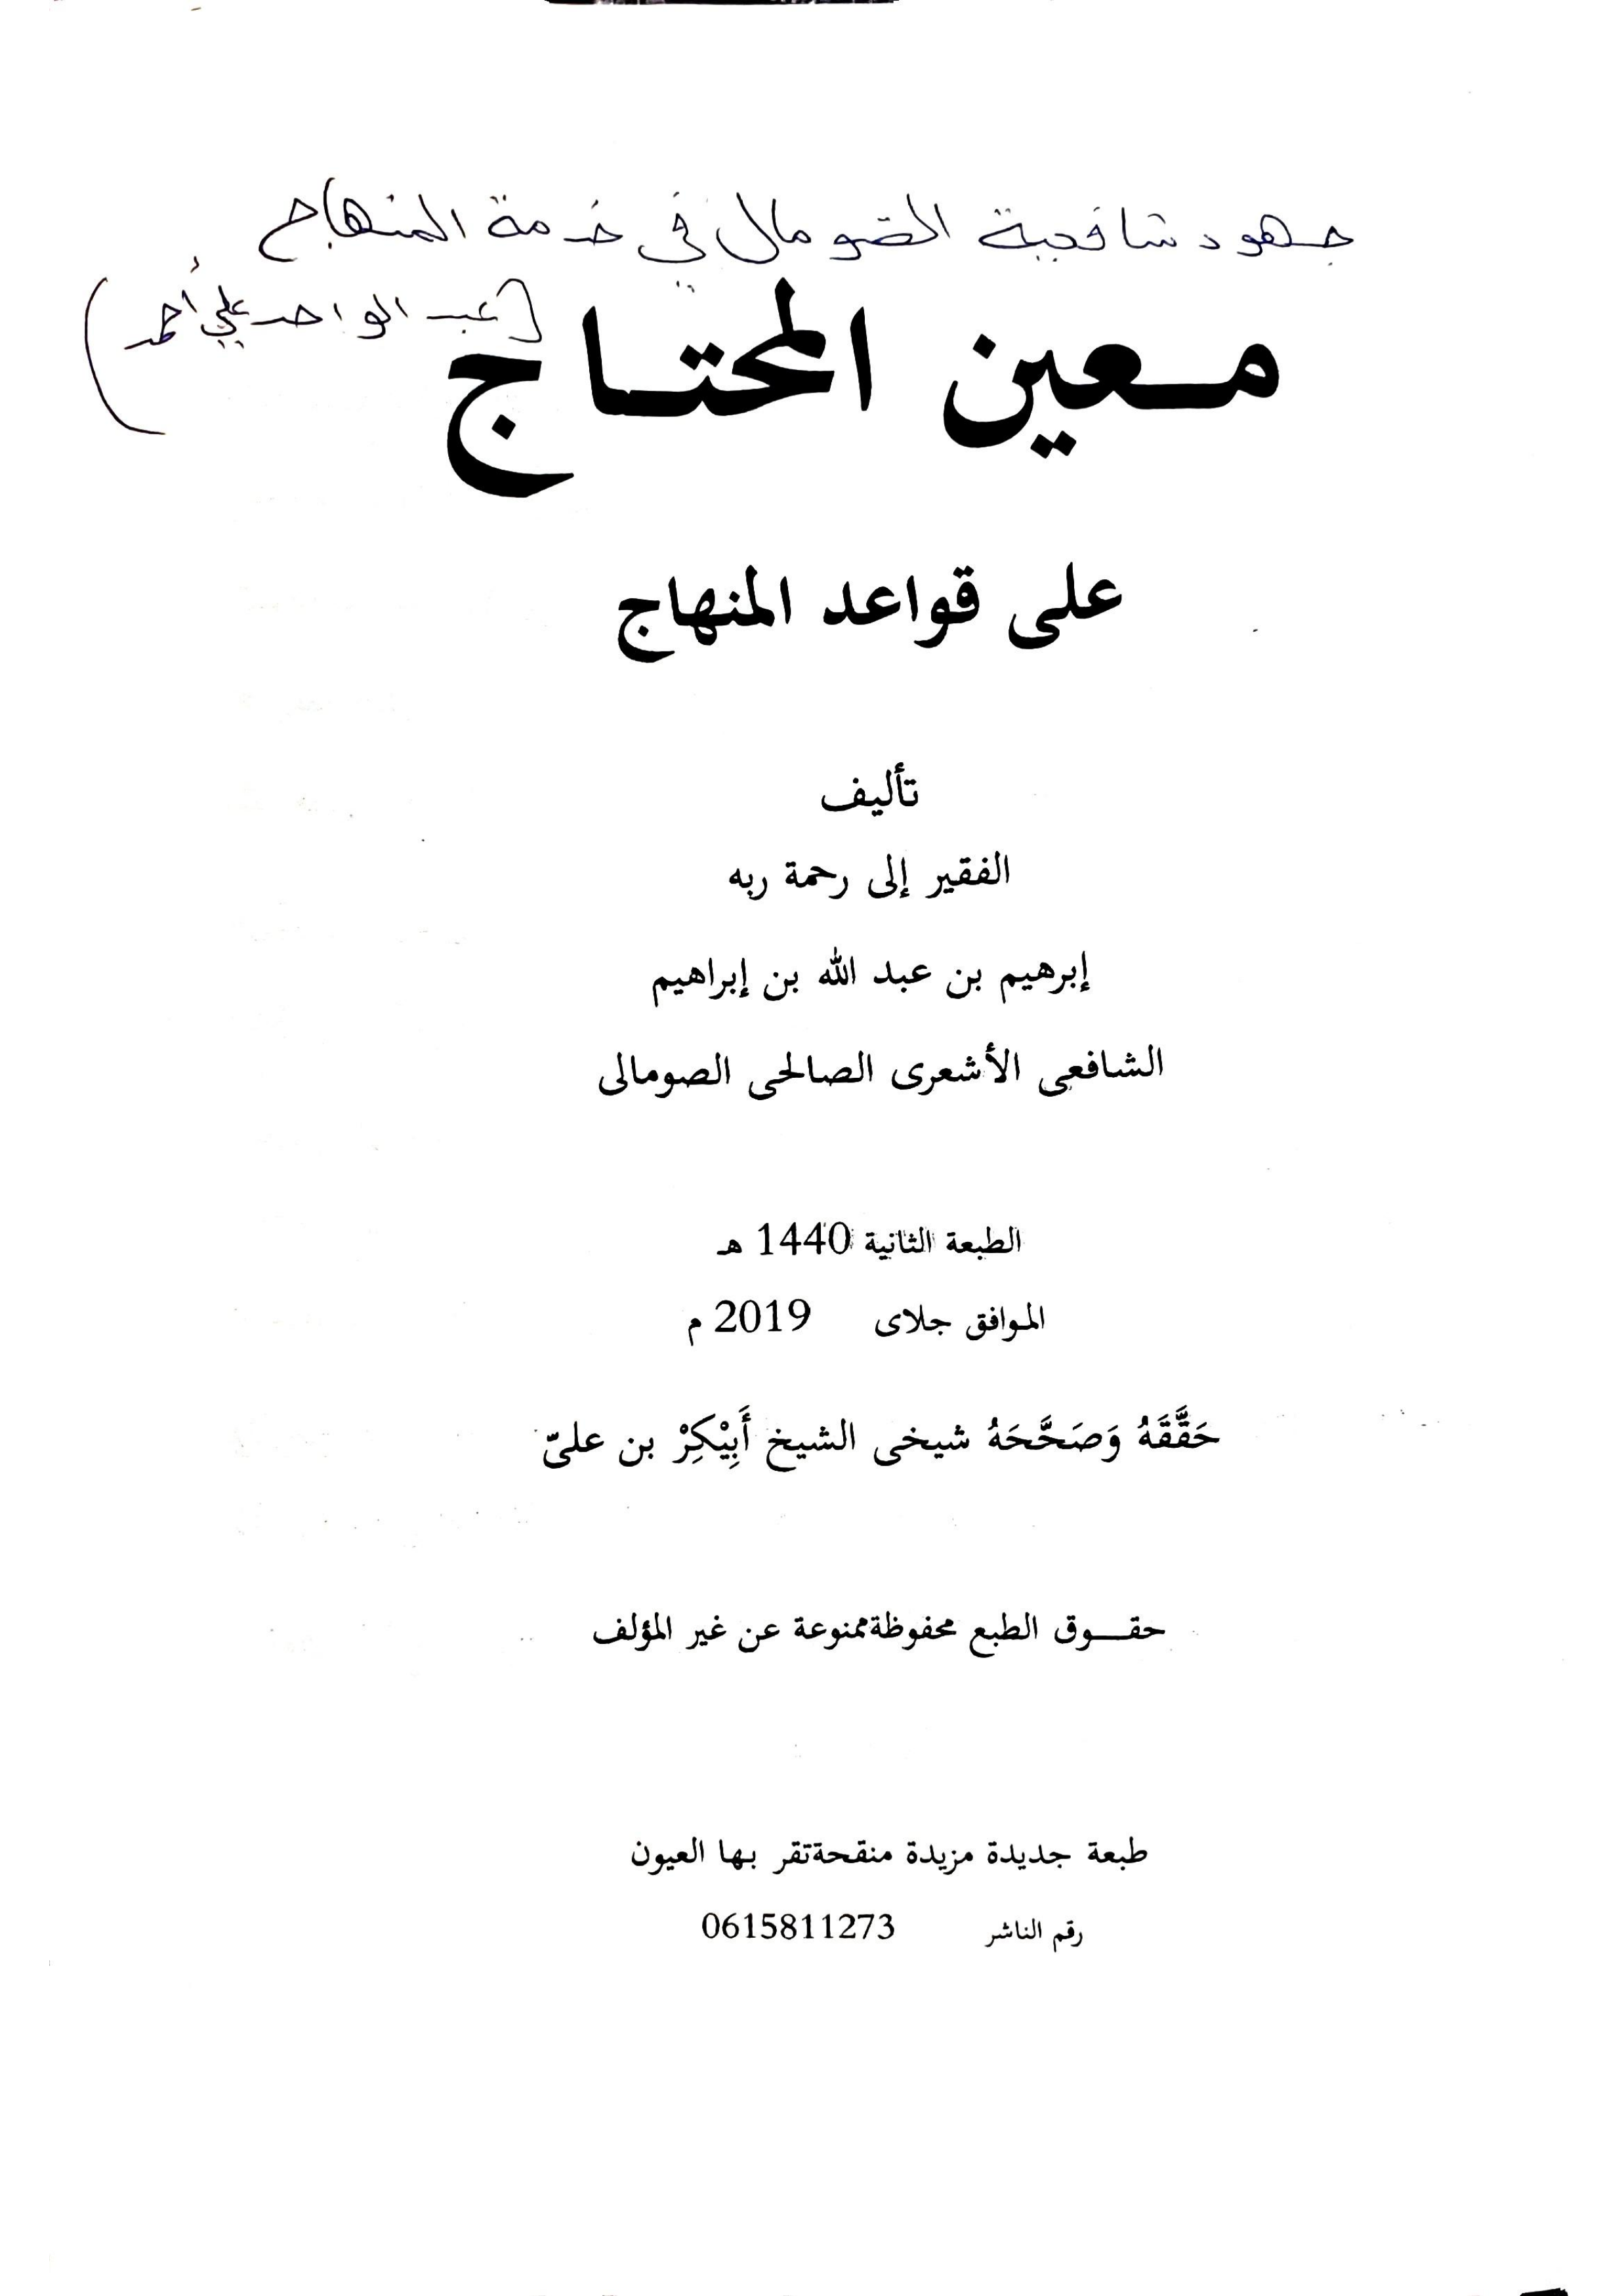 جهود شافعية الصومال في خدمة المنهاج
(عبد الواحد علي أحمد)
معين المحتاج
على قواعد المنهاج
تأليف
الفقير إلى رحمة ربه
إبرهيم بن عبد الله بن إبراهيم
الشافعى الأشعرى الصالحى الصومالى
الطبعة الثانية 1440 هـ
الموافق جلاى 2019 م
حَقَّقَهُ وَصَحَّحَهُ شيخى الشيخ أَبِيْكِرْ بن علىّ
حقــوق الطبع محفوظة ممنوعة عن غير المؤلف
طبعة جديدة مزيدة منقحة تقر بها العيون
رقم الناشر 0615811273